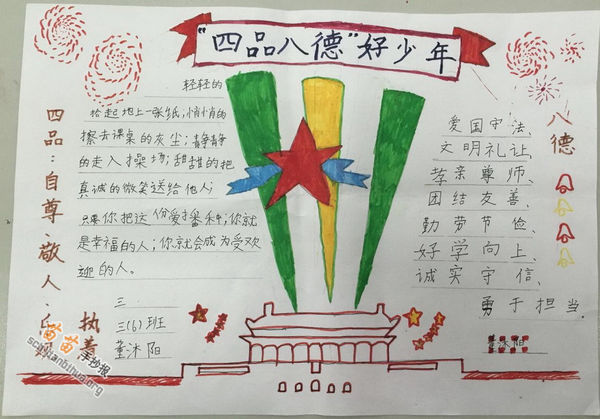 "四品八德"好少年
四品：自尊、敬人、
执着
轻轻的
拾起地上一张纸；悄悄的
擦去课桌的灰尘；静静
的走入操场；甜甜的把
真诚的微笑送给他人；
只要你把这份爱播种；你就
是幸福的人；你就会成为受欢
迎的人。
三
三(6)班
董沐阳
八德
爱国守法、
文明礼让、
孝亲尊师、
团结友善、
勤劳节俭、
好学向上、
诚实守信、
勇于担当
董沐阳
苗苗手抄报
scmianbihua.org